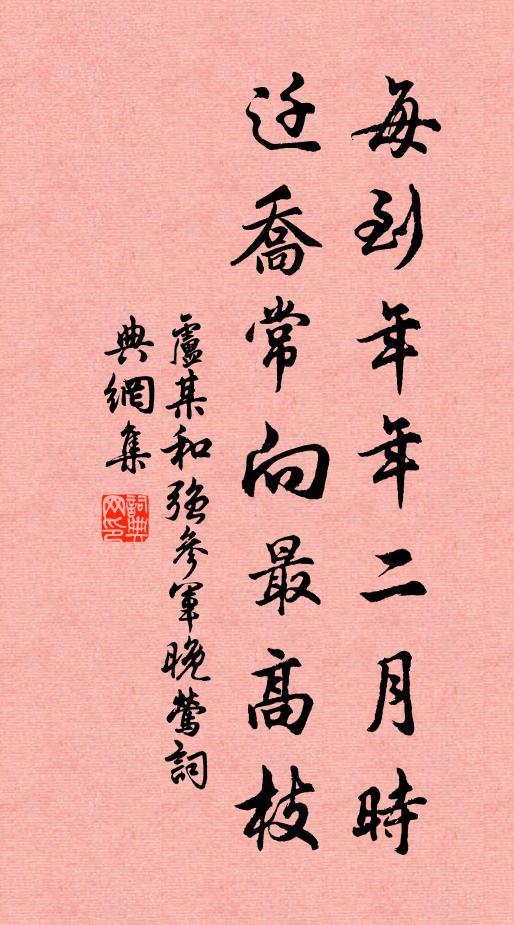 每到年年二月時
迁喬常向最高枝
盧某和強參軍晚鶯詞
典網集
詞典
网印